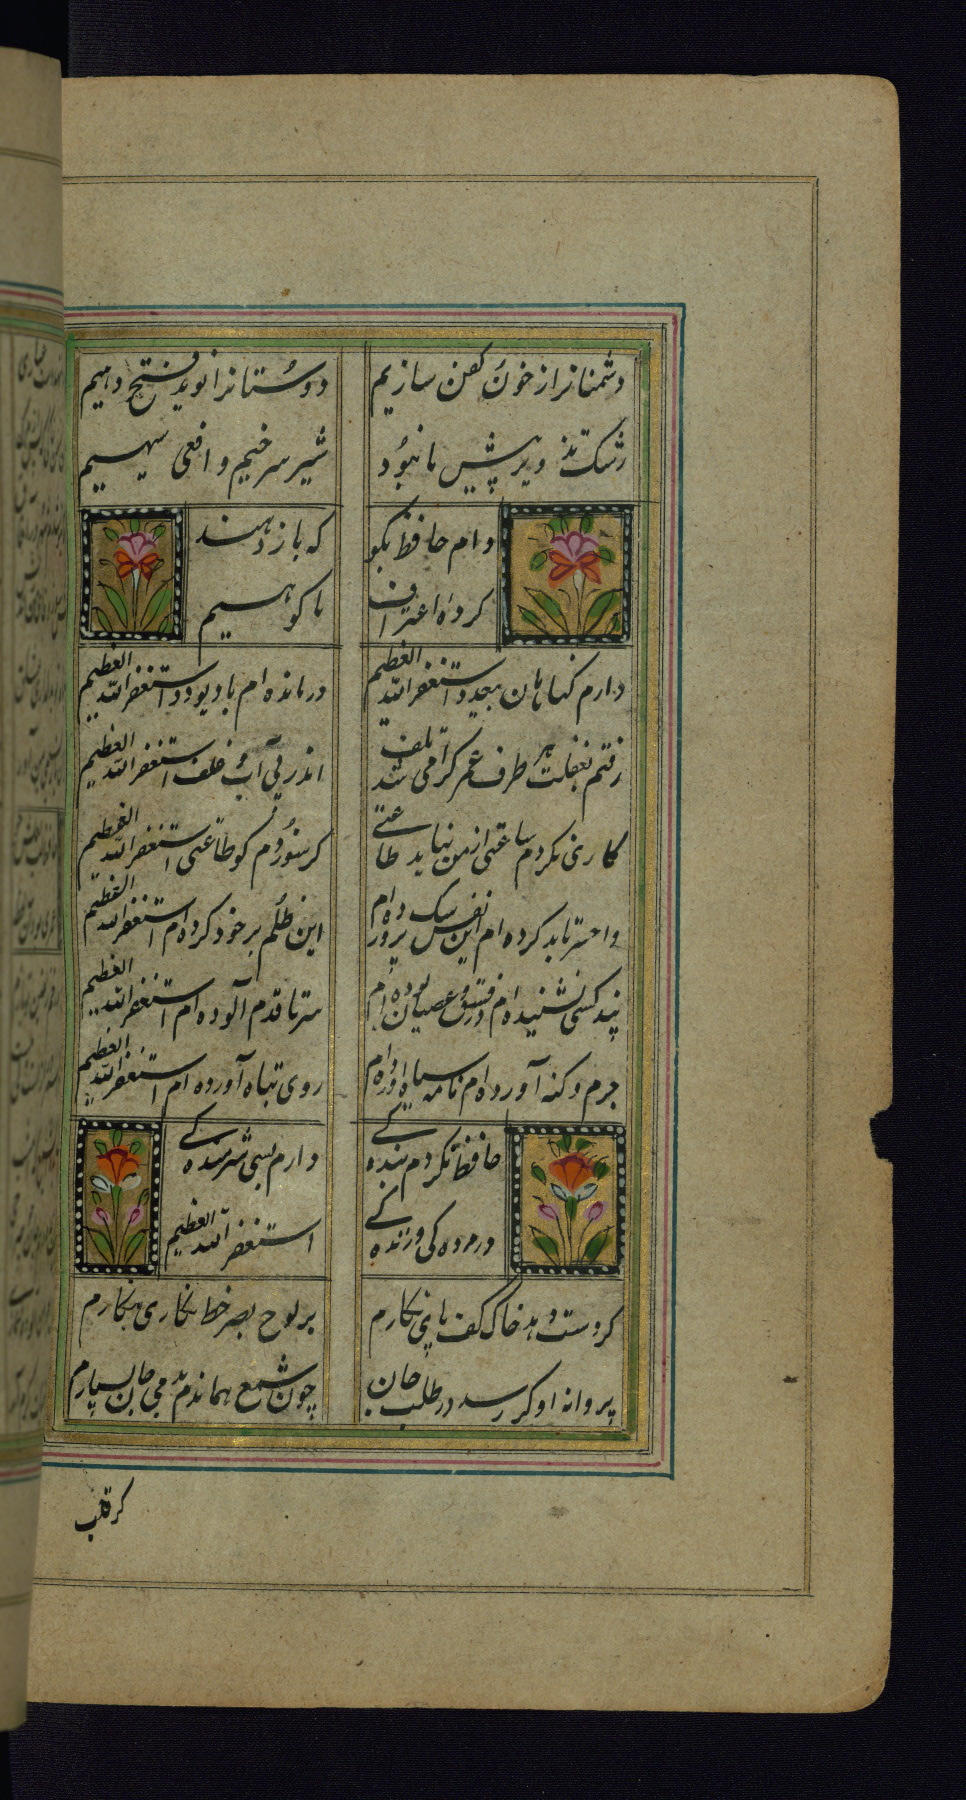 دشمنانرا ز خون کفن سازیم
دوستانرا نوید فتح دهیم
رنگ تزویر پیش ما نبود
شیر سرخیم و افعی سیهیم
وام حافظ بگو
که باز دهند
کردهٔ اعتراف
ما کوهیم
دارم کناهان بیحد و استغفر الله العظیم
درمانده ام با دیو و دد استغفر الله العظیم
رفتم بغفلت هر طرف عمر کرامی شد تلف
اندر پی آب و علف استغفر الله العظیم
کاری نکردم ساعتی از من نیاید طاعتی
کر سوزدم کو طاعتی استغفر الله العظیم
واحسرتا بد کرده ام این نفس سک پرورده ام
این ظلم بر خود کرده ام استغفر الله العظیم
پند کسی نشنیده ام در فسق و عصیان بوده ام
سر تا قدم آلوده ام استغفر الله العظیم
جرم و کنه آورده ام نامه سیاه آورده ام
روی تباه آورده ام استغفر الله العظیم
حافظ نکردم بنده کے
دارم بسی شرمنده کے
در مرده کی و زنده کے
استغفر الله العظیم
کر دست دهد خاک کف پای نکارم
بر لوح بصر خط نکاری بنکارم
پروانه او کر رسد در طلب جان
چون شمع هماندم بدمی جان بسپارم
کر قلب